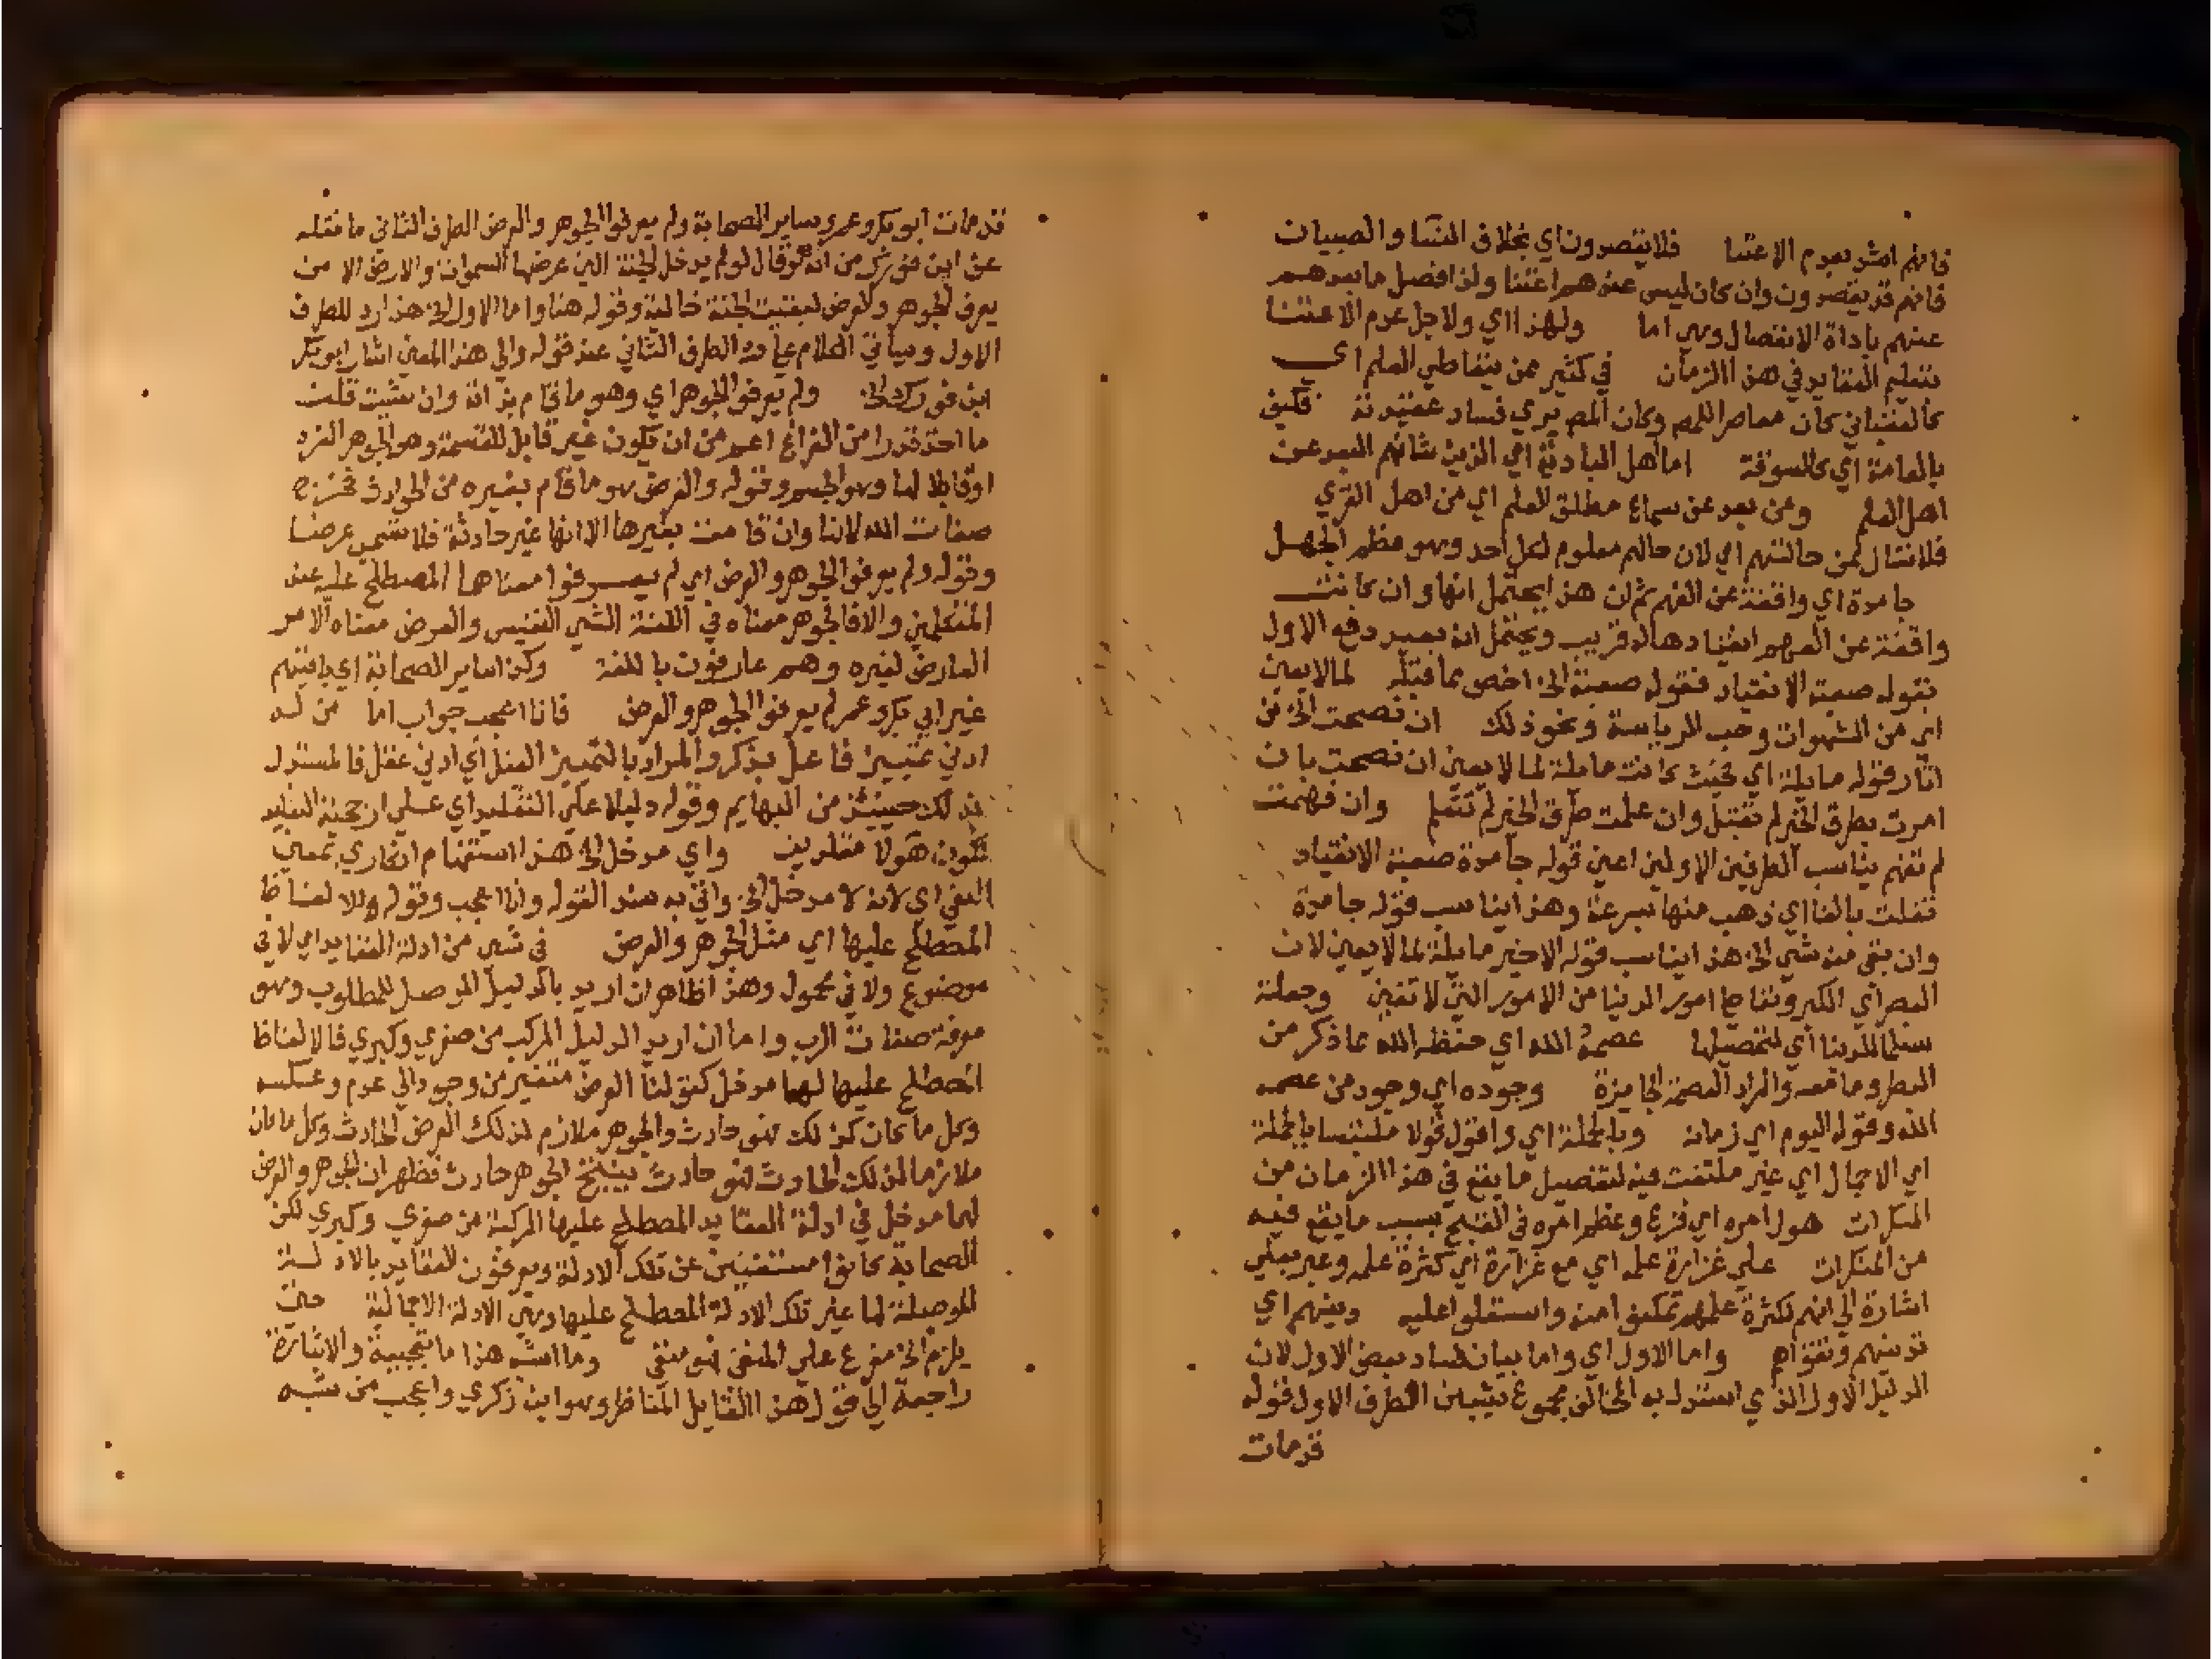 فانهم اشد بعدم الاعتنا فلا يتصدون اي بخلاف النسا والصبيان
فانهم قد يقصدون وان كان ليس عندهم اعتنا ولذا فصل ما بعدهم
عنهم باداة الانفصال وهي اما ولهذا اي ولاجل عدم الاعتنا
بتعليم العقايد في هذا الزمان في كثير ممن يتعاطي العلم اي
كان معاصرا للمص وكان المص يري فساد عقيدته فكيف
بالعامة اي كالسوقة اما اهل البادية اي الذين شانهم البعد عن
اهل العلم ومن بعد عن سماع مطلق العلم اي من اهل القري
فلا تسال عن حالتهم اي لان حالهم معلوم لكل احد وهو عظم الجهل
جامدة اي واقفة عن الفهم ثم ان هذا يحتمل انها وان كانت
واقفة عن الفهم انقيادها له قريب ويحتمل انه بعيد دفع الاول
بقوله صعبة الانقياد فقوله صعبة الخ اخص مما قبله لما لا يعني
اي من الشهوات وحب الرياسة ونحو ذلك ان نصحت الخ من
اثار قوله مايلة اي بحيث كانت مايلة لما لا يعني ان نصحت بان
امرت بطرق الخير لم تقبل وان علمت طرق الخير لم تتعلم وان فهمت
لم تفهم يناسب الطرفين الاولين اعني قوله جامدة صعبة الانقياد
تفلت بالفا اي ذهب منها بسرعة وهذا يناسب قوله جامدة
وان بقي منه شي الخ هذا يناسب قوله الاخير مايلة لما لا يعني لان
البطر اي الكبر وتعاطي امور الدنيا من الامور التي لا تعني وجعلته
سلما للدنيا اي لتحصيلها عصمه الله اي حفظه الله مما ذكر من
البطر وما معه والمراد العصمة الجايزة وجوده اي وجود من عصمه
الله وقوله اليوم اي زمانه وبالجملة اي واقول قولا ملتبسا بالجملة
اي الاجمال اي غير ملتفت فيه لتفصيل ما يقع في هذا الزمان من
المنكرات هول امره اي فزع وعظم امره في القبح بسبب ما يقع فيه
من المنكرات علي غزارة علمه اي مع غزارة اي كثرة علمه وعبر بعلي
اشارة الي انهم لكثرة علمهم تمكنوا منه واستعلوا عليه ودينهم اي
تدينهم وتقواهم واما الاول اي واما بيان فساد بعض الاول لان
الدليل الاول الذي استدل به المخالف مجموع شيئين الطرف الاول قوله
قد مات
قد مات ابو بكر وعمر وساير الصحابة ولم يعرفوا الجوهر والعرض الطرف الثاني ما نقله
عن ابن فورك من انه لو لم يدخل الجنة التي عرضها السموات والارض الا من
يعرف الجوهر والعرض لبقيت الجنة خالية وقوله هنا واما الاول الخ هذا رد للطرف
الاول وسياتي الكلام علي رد الطرف الثاني عند قوله والي هذا المعني اشار ابو بكر
ابن فورك الخ ولم يعرفوا الجوهر اي وهو ما قام بذاته وان شيت قلت
ما اخذ قدرا من الفراغ اعم من ان يكون غير قابل للقسمة وهو الجوهر الفرد
او قابلا لها وهو الجسم وقوله والعرض هو ما قام بغيره من الحوادث فخرج
صفات الله لانها وان قامت بغيرها الا انها غير حادثة فلا تسمي عرضا
وقوله ولم يعرفوا الجوهر والعرض اي لم يعرفوا معناهما المصطلح عليه عند
المتكلمين والا فالجوهر معناه في اللغة الشي النفيس والعرض معناه الامر
العارض لغيره وهم عارفون باللغة وكذا ساير الصحابة اي باقيهم
غير ابي بكر وعمر لم يعرفوا الجوهر والعرض فانا اعجب جواب اما من له
ادني تمييز فاعل يذكر والمراد بالتمييز العقل اي ادني عقل فالمستدل
بذلك حينيذ من البهايم وقوله دليلا علي التقليد اي علي ارجحية التقليد
بكون هولا مقلدين واي مدخل الخ هذا استفهام انكاري بمعني
النفي اي لانه لا مدخل الخ واتي به سند القوله وانا اعجب وقوله والالفاظ
المصطلح عليها اي مثل الجوهر والعرض في شي من ادلة العقايد اي لا في
موضوع ولا في محمول وهذا ظاهر ان اريد بالدليل الموصل للمطلوب وهو
معرفة صفات الرب واما ان اريد الدليل المركب من صغري وكبري فالالفاظ
المصطلح عليها لها مدخل كقولنا العرض متغير من وجود الي عدم وعكسه
وكل ما كان كذلك فهو حادث والجوهر ملازم لذلك العرض الحادث وكل ما كان
ملازما لذلك الحادث فهو حادث ينتج الجوهر حادث فظهر ان الجوهر والعرض
لهما مدخل في ادلة العقايد المصطلح عليها المركبة من صغري وكبري لكن
الصحابة كانوا مستغنين عن تلك الادلة ويعرفون العقايد بالادلة
الموصلة لها غير تلك الادلة المصطلح عليها وهي الادلة الاجمالية حتي
يلزم الخ مفرع علي المنفي فهو منفي وما اشبه هذا ما تعجبية والاشارة
راجعة الي قول هذا القايل المناظر وهو ابن زكري واعجب من شبه